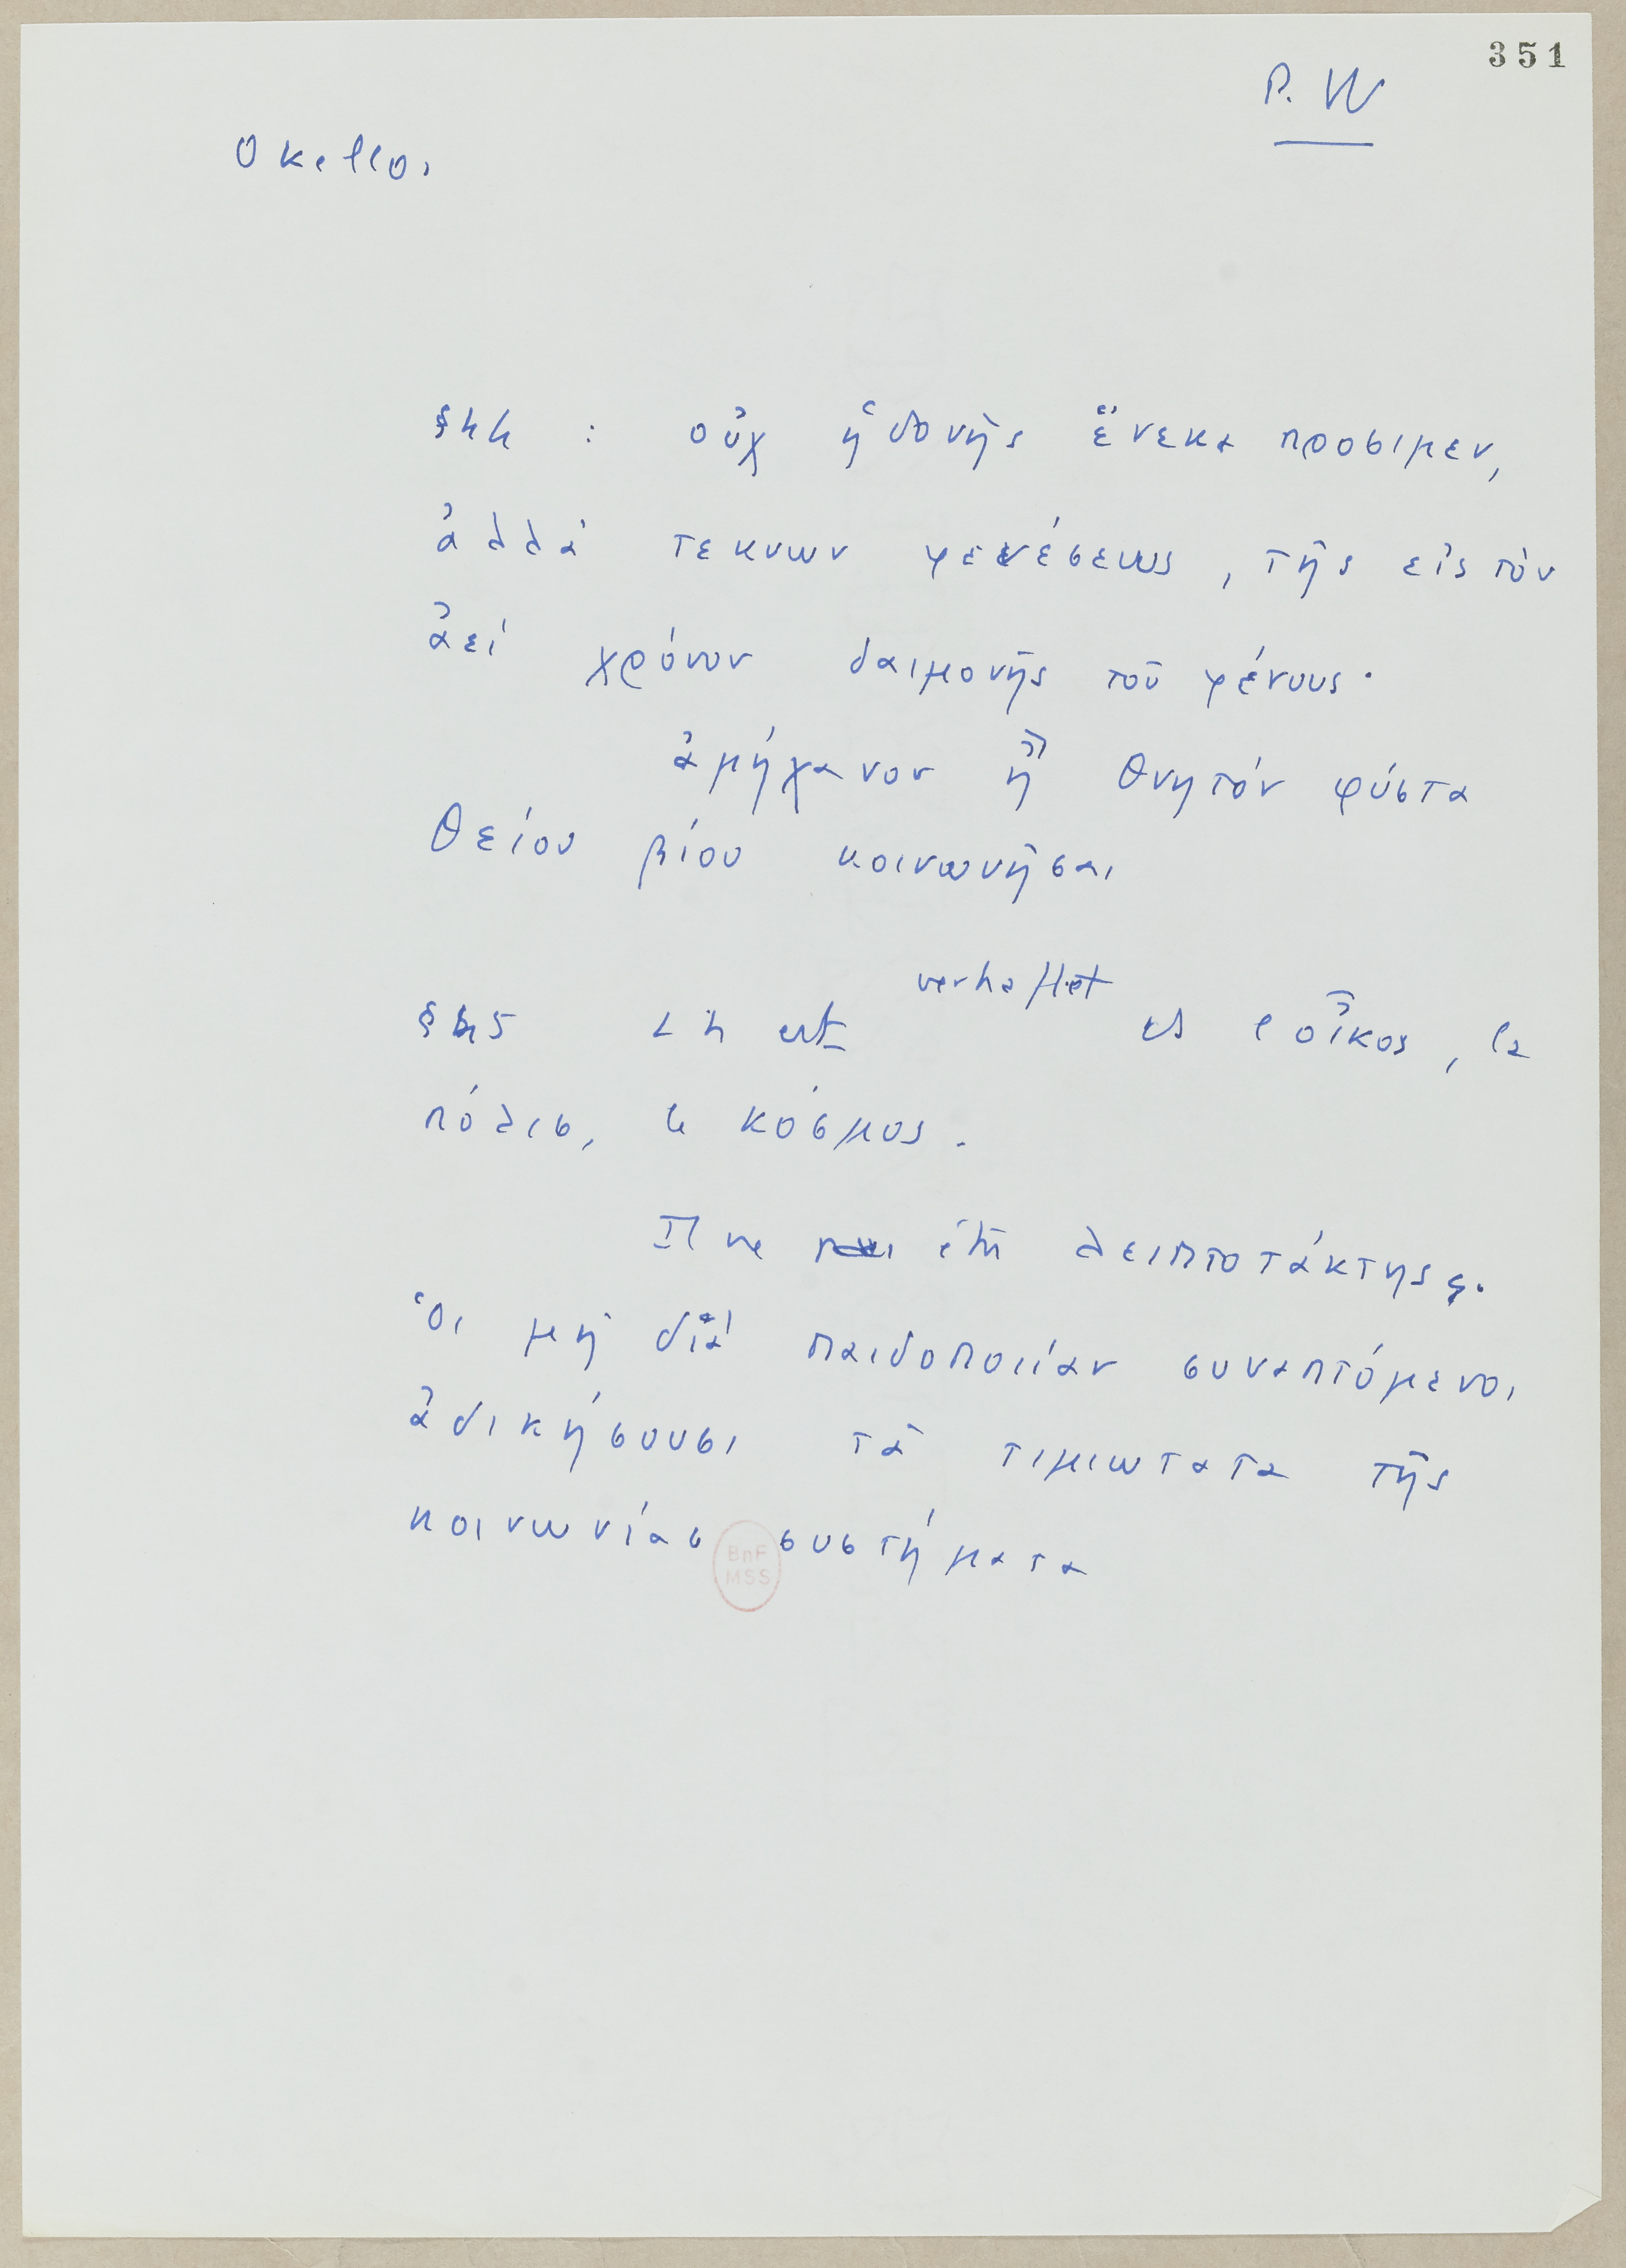 351
P. W
Okellos
§44 : οὐχ ἡδονῆς ἕνεκα προσιμεν,
ἀλλὰ τεκνων γενέσεως, τῆς εἰς τὸν
ἀεί χρόνον δαιμονῆς τοῦ γένους·
ἀμήχανον ἢ θνητόν φύστα
θείου βίου κοινωνῆσαι
verhaftet
§45 L'h est et l'οἶκος, la
πόλισ, le κόσμος.
Il ne être λειπτοτάκτης
Ὁι μὴ διά παιδοποιίαν συναπτόμενοι
ἀδικήσουσι τὰ τιμιωτατα τῆς
κοινωνίασ συστήματα
BnF
MSS